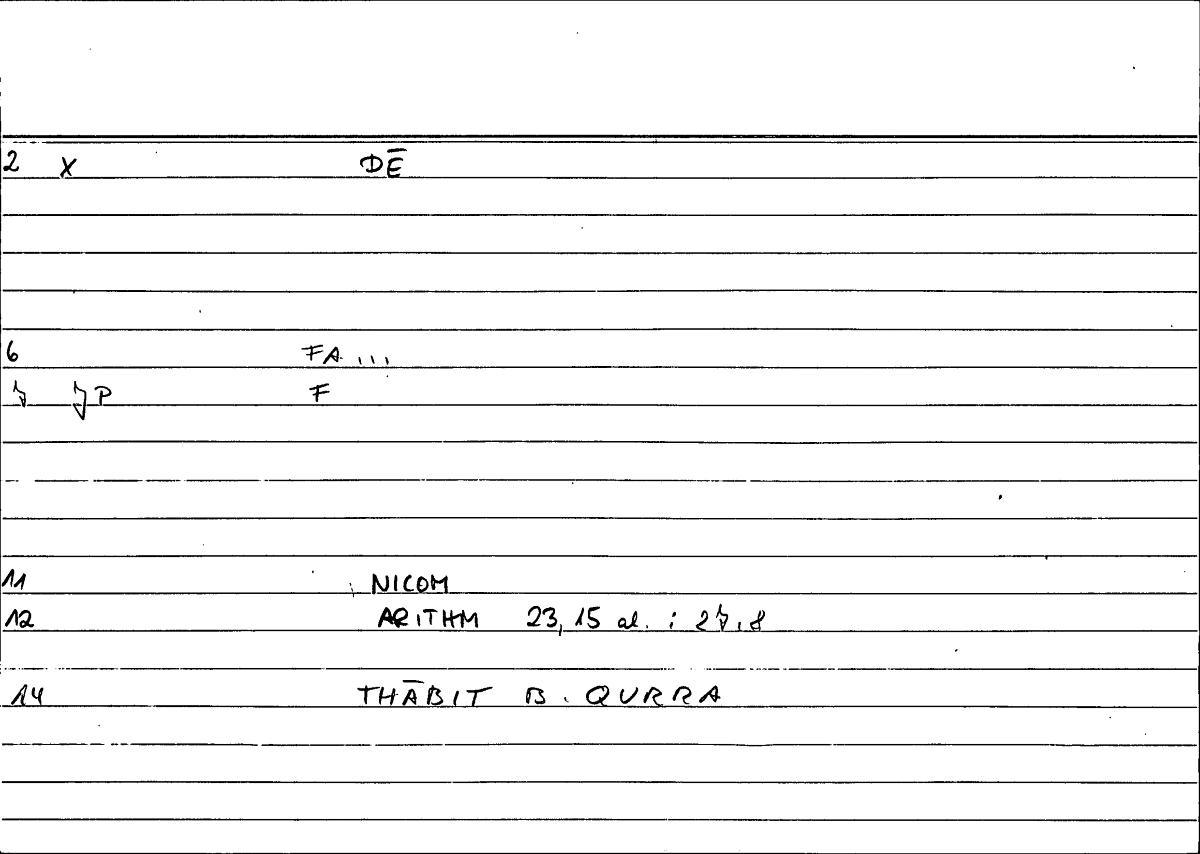 2 X DĒ
6 FA ...
7 7P F
11 NICOM
12 ARITHM 23,15 al. ; 27,8
14 THĀBIT B. QURRA